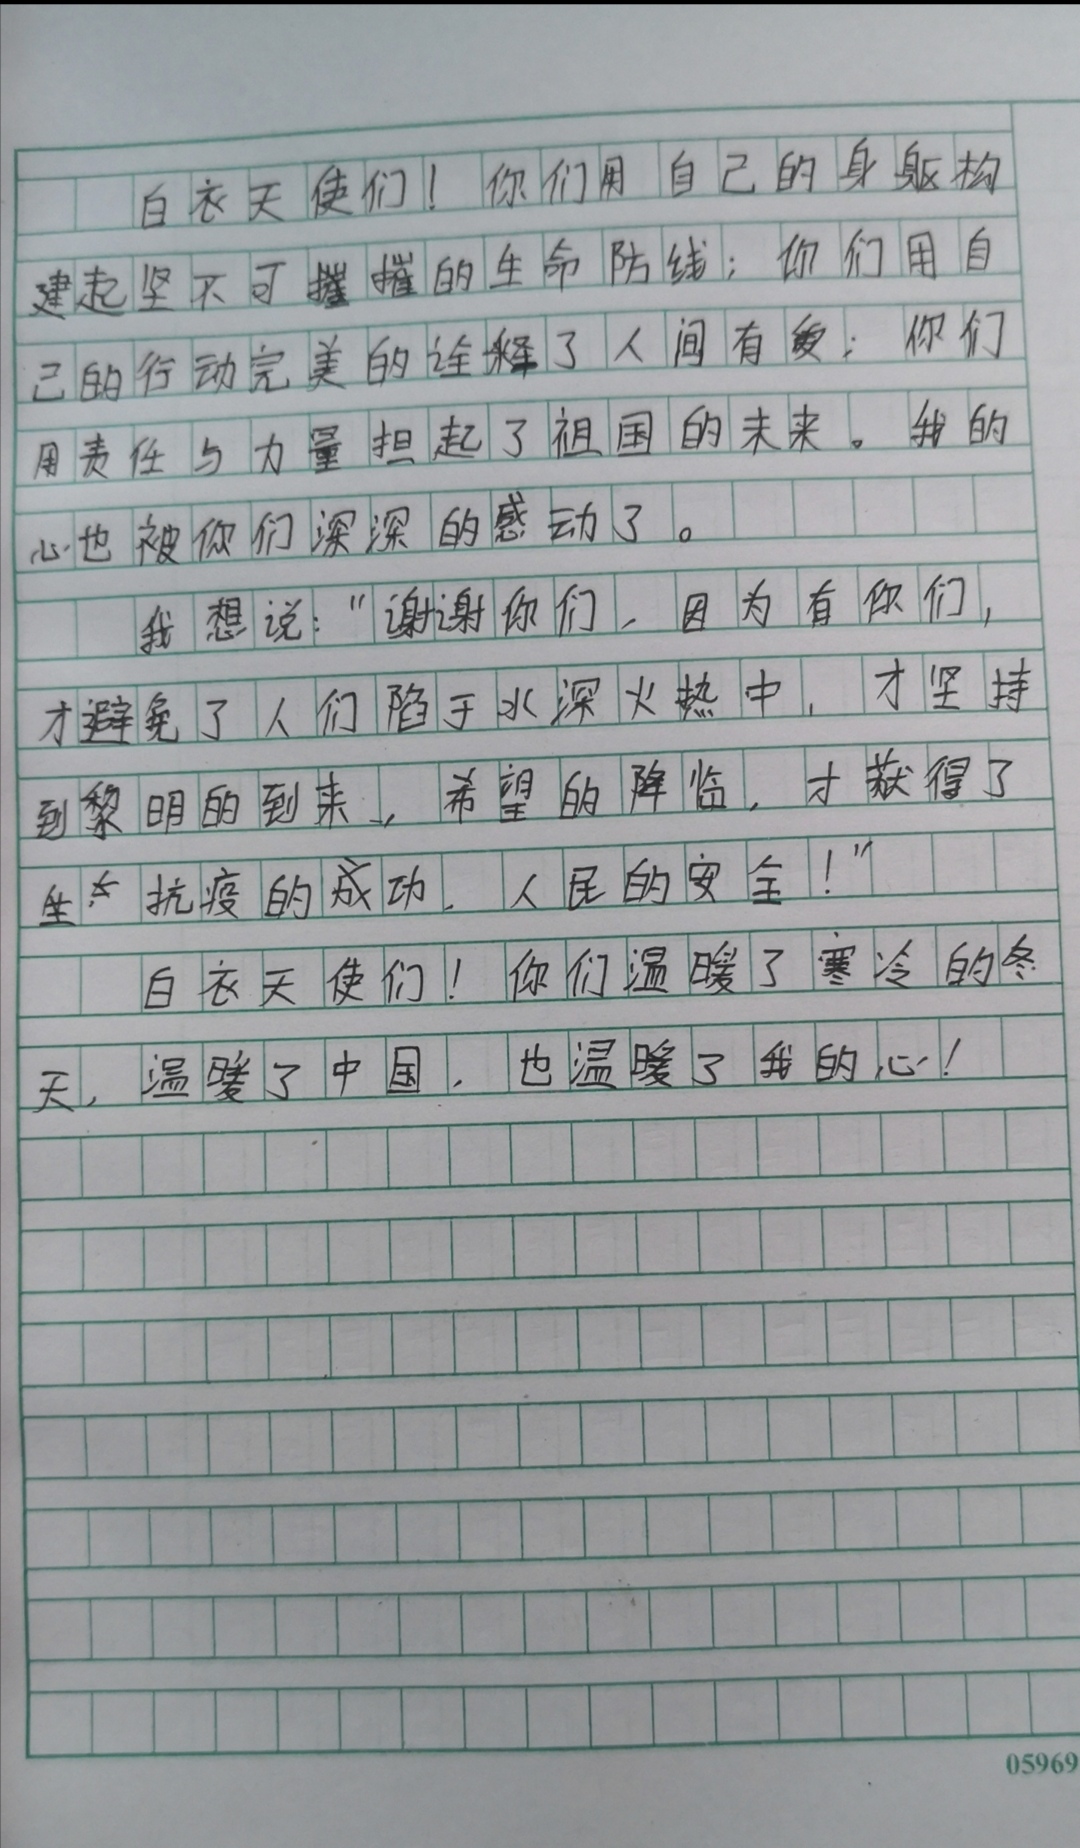 白衣天使们！你们用自己的身躯构
建起坚不可摧的生命防线；你们用自
己的行动完美的诠释了人间有爱；你们
用责任与力量担起了祖国的未来。我的
心也被你们深深的感动了。
我想说：“谢谢你们，因为有你们，
才避免了人们陷于水深火热中，才坚持
到黎明的到来，希望的降临，才获得了
抗疫的成功，人民的安全！”
白衣天使们！你们温暖了寒冷的冬
天，温暖了中国，也温暖了我的心！
05969